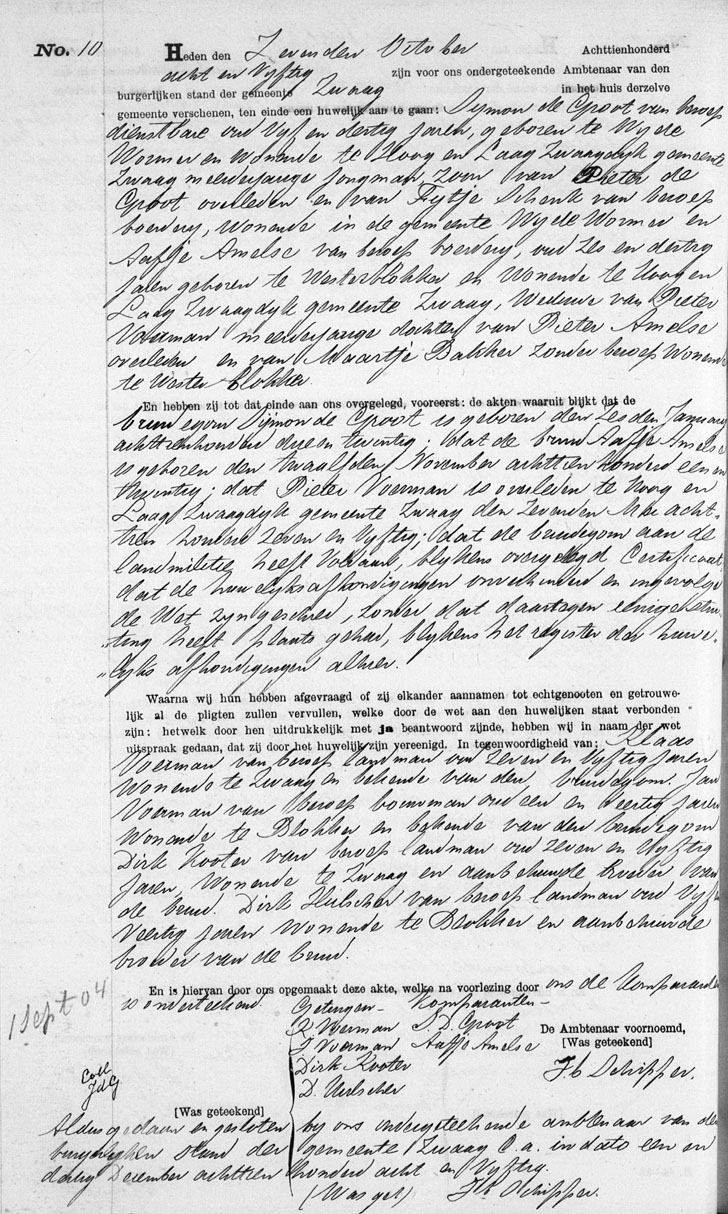 No. 10 Heden den Zevenden October Achttienhonderd
acht en Vyftig zijn voor ons ondergeteekende Ambtenaar van den
burgerlijken stand der gemeente Zwaag in het huis derzelve
gemeente verschenen, ten einde een huwelijk aan te gaan: Symon de Groot van beroep
dienstbare oud Vyf en dertig jaren, geboren te Wyde
Wormer en Wonende te Hoog en Laag Zwaagdyk gemeente
Zwaag meerderjarige jongman, zoon van Pieter de
Groot overleden en van Fytje Schenk van beroep
boerdery, Wonende in de gemeente Wyde Wormer en
Aafje Amelse van beroep boerdery, oud Zes en dertig
jaren geboren te Westerblokker en Wonende te Hoog en
Laag Zwaagdyk gemeente Zwaag, Weduwe van Pieter
Voerman meerderjarige dochter van Pieter Amelse
overleden en van Maartje Bakker zonder beroep Wonende
te Wester blokker.
En hebben zij tot dat einde aan ons overgelegd, vooreerst: de akten waaruit blijkt dat de
bruidegom Symon de Groot is geboren den Zesden January
achttienhonderd drie en twintig; dat de bruid Aafje Amelse
is geboren den twaalfden November achttien honderd een en
twintig; dat Pieter Voerman is overleden te Hoog en
Laag Zwaagdyk gemeente Zwaag den Zevenden Mei acht-
tien honderd Zeven en Vyftig; dat de bruidegom aan de
landmilitie heeft Voldaan, blykens overgelegd Certificaat,
dat de huwelyksafkondigingen onverhinderd en ingevolge
de Wet zyn geschied, zonder dat daartegen eenige stui-
„ting heeft plaats gehad, blykens het register der huwe-
„lyks afkondigingen alhier.
Waarna wij hun hebben afgevraagd of zij elkander aannamen tot echtgenooten en getrouwe-
lijk al de pligten zullen vervullen, welke door de wet aan den huwelijken staat verbonden
zijn: hetwelk door hen uitdrukkelijk met ja beantwoord zijnde, hebben wij in naam der wet
uitspraak gedaan, dat zij door het huwelijk zijn vereenigd. In tegenwoordigheid van: Klaas
Voerman van beroep landman oud Zeven en Vyftig jaren
Wonende te Zwaag en bekende van den bruidegom. Jan
Voerman van beroep bouwman oud een en Veertig jaren
Wonende te Blokker en bekende van den bruidegom
Dirk Kooter van beroep landman oud Zeven en Vyftig
jaren, Wonende te Zwaag en aanbehuwde broeder van
de bruid. Dirk Hulscher van beroep landman oud Vyf
Veertig jaren Wonende te Blokker en aanbehuwde
broeder van de bruid.
En is hiervan door ons opgemaakt deze akte, welke na voorlezing door ons de Comparanten
is onderteekend. Getuigen- Komparanten-
1 Sept 04
K Voerman S. D. Groot De Ambtenaar voornoemd,
J Voerman Aafje Amelse [Was geteekend]
Dirk Kooter Jb Schipper.
D. Hulscher
Coll
JdG
[Was geteekend]
Aldus gedaan en gesloten by ons ondergeteekende ambtenaar van den
burgerlyken stand der gemeente Zwaag C.a. in dato een en
dertig December achttien honderd acht en Vyftig.
(Was get) Jb Schipper.